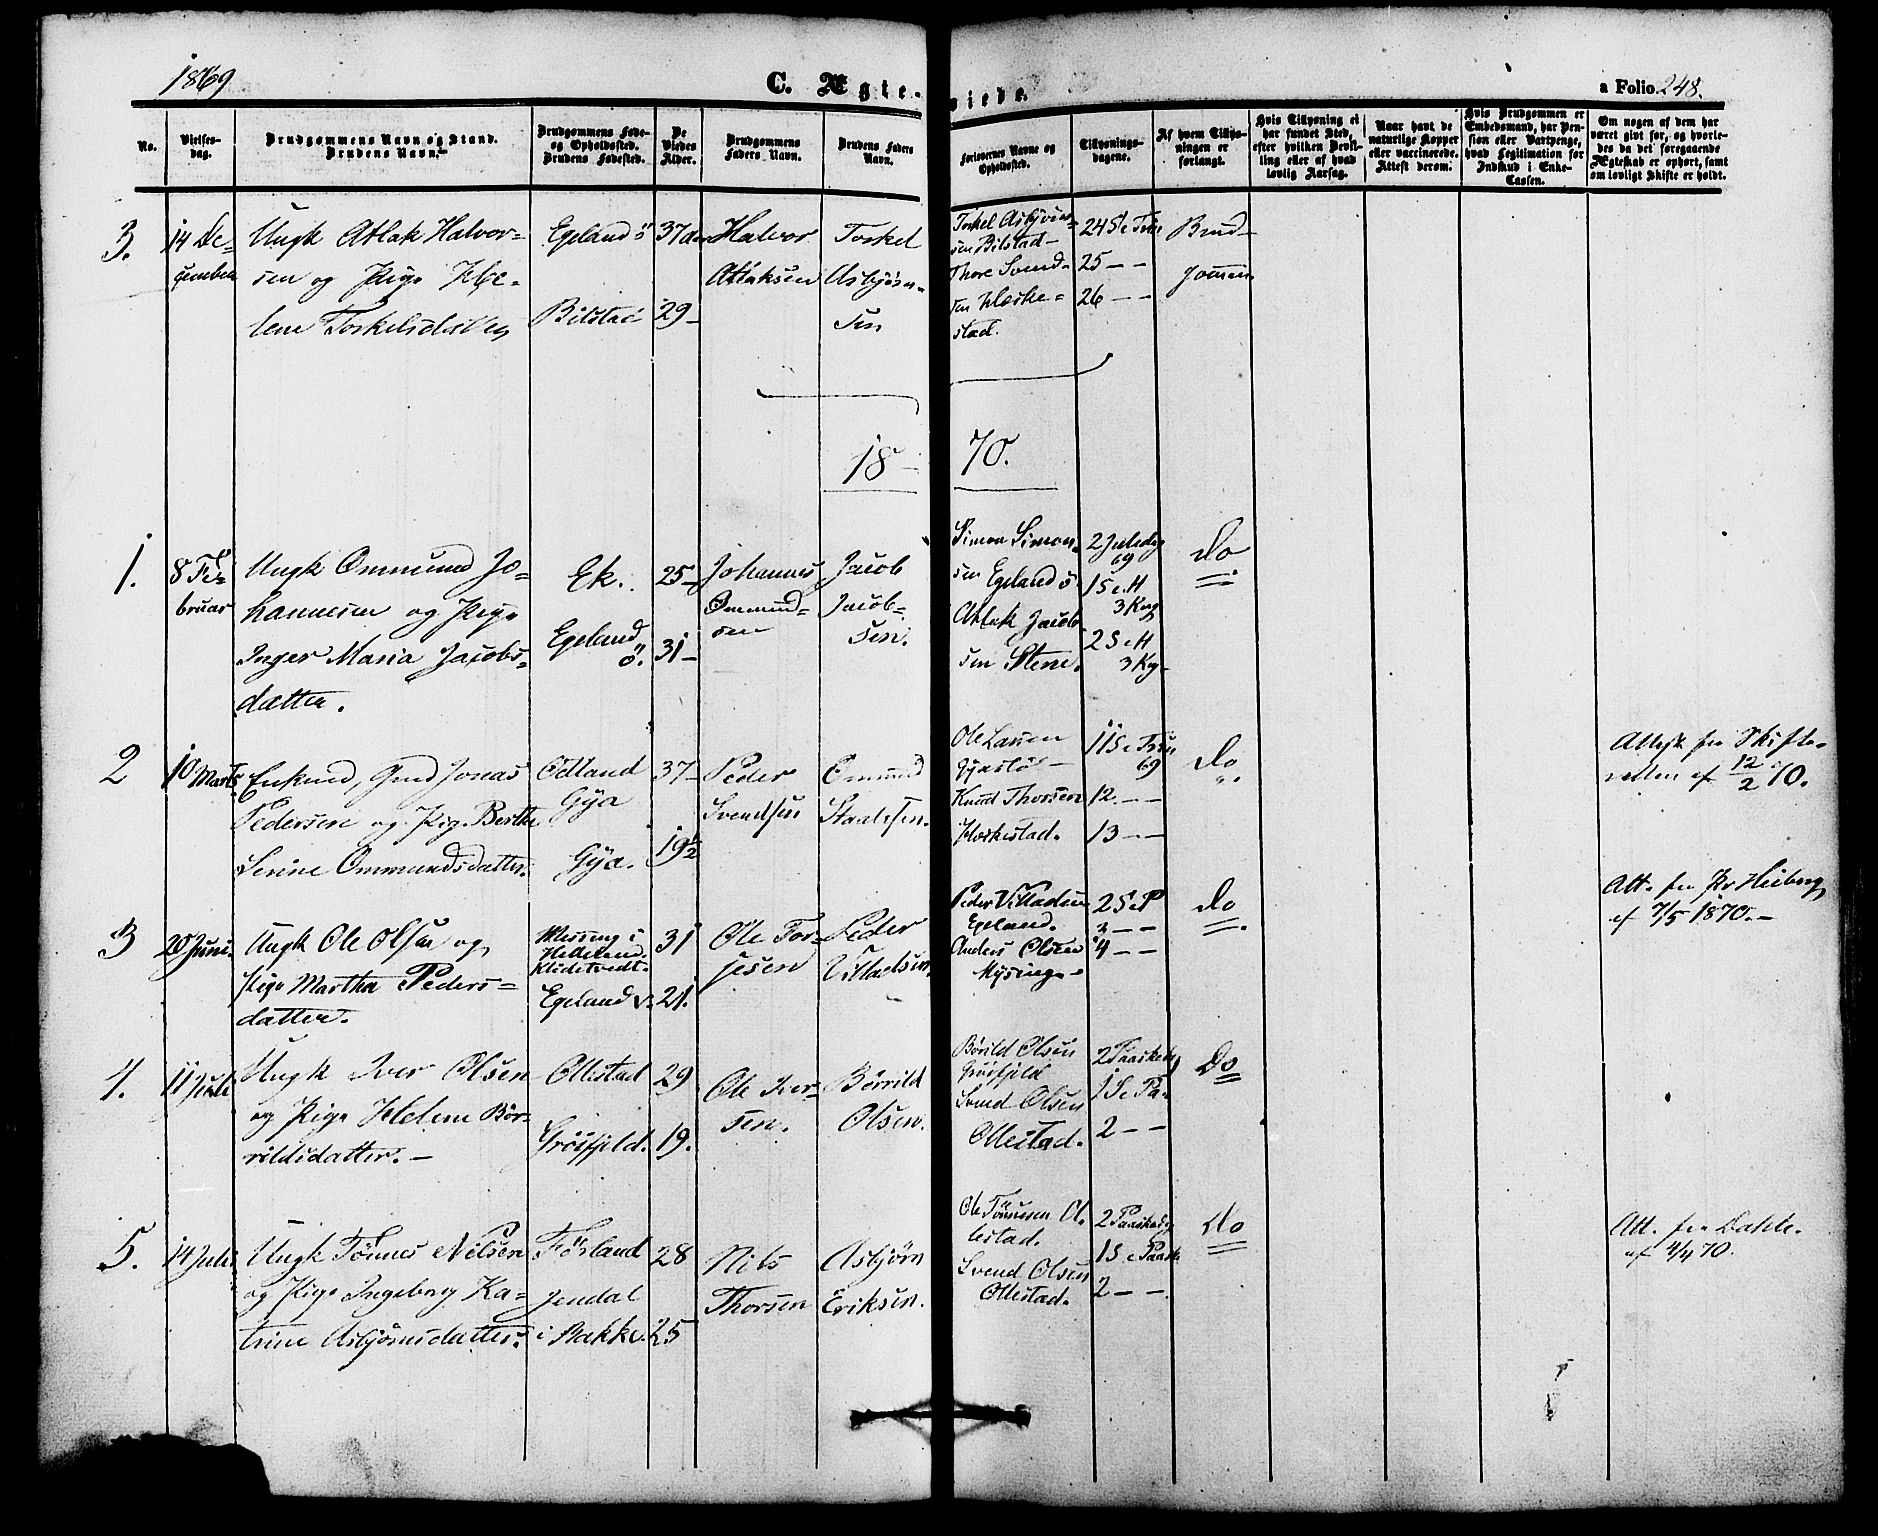 1869
C. Ægteviede.
a Folio 248.
No.
Vielses-
dag.
Brudgommens Navn og Stand.
Brudens Navn.
Brudgommens Føde-
og Opholdssted.
Brudens Fødested.
De
Viedes
Alder.
Brudgommens
Faders Navn.
Brudens Faders
Navn.
Forlovernes Navne og
Opholdssted.
Tillysnings-
dagene.
Af hvem Tillys-
ningen er
forlangt.
Hvis Tillysning ei
har fundet Sted,
efter hvilken Bevil-
ling eller af hvad
lovlig Aarsag.
Naar havt de
naturlige Kopper
eller vaccinerede.
Attest derom.
Hvis Brudgommen er
Embedsmand, har Pen-
sion eller Vartpenge,
hvad Legitimation for
Indskud i Enke-
Cassen.
Om nogen af dem har
været gift før, og hvorle-
des da det foregaaende
Ægteskab er ophørt, samt
om lovligt Skifte er holdt.
3.
14 De-
cember
Ungk Atlak Halvor-
sen og Pige Hele-
lene Torkelsdatter
Egeland ö
Bilstad
37 Aar
29 -
Halvor
Atlaksen
Torkel
Asbjörn-
sen
Torkel Asbjörn-
sen Bilstad -
Thore Svend-
sen Hæske-
stad.
24 S e Trin
25 - -
26 - -
Brud-
gommen
18 - 70.
1.
8 Fe-
bruar
Ungk Ommund Jo-
hannesen og Pige
Inger Maria Jacobs-
datter.
Ek.
Egeland
ö.
25 -
31 -
Johannes
Ommund-
sen
Jacob
Jacob-
sen.
Simon Simon-
sen Egeland ö
Atlak Jacob-
sen Stene.
2 Juledg
69
1 S e H
3 Kng
2 S e H
3 Kg -
Do
2
10 Marts
Enkmd, Gmd Jonas
Pedersen og Pige Berthe
Serine Ommundsdatter.
Ödland
Gya
Gya.
37 -
19 1/2
Peder
Svendsen
Omund
Staalesen.
Ole Larsen
Knud Thorsen
Hæskestad.
11 S e Trin
69
12. - -
13 - -
Do
Attest fra Skifte-
retten af 12/2 70.
3
20 Juni.
Ungk Ole Olsen og
Pige Martha Peders-
datter.
Messing i
Helleland.
Klidetvedt.
Egeland v.
31
21.
Ole Tor-
jesen
Peder
Villadsen
Peder Villadsen
Egeland.
Anders Olsen
Mysinge -
2 S e P
3 - -
4 - -
Do
Att. fra Pr Heiberg
af 7/5 1870. -
4.
11 Juli
Ungk Iver Olsen
og Pige Helene Bör-
rildsdatter. -
Ollestad
Gröisfjeld.
29
19.
Ole Iver-
sen.
Börrild
Olsen.
Börild Olsen
Gröisfjeld
Svend Olsen
Ollestad.
2 Paaskedg
1 S e Pa-
2 - -
Do
5.
14 Juli
Ungk Tönnes Nelsen
og Pige Ingeborg Ka-
trine Asbjörnsdatter.
Fösland
Jendal
i Bakke.
28
25
Nils
Thorsen
Asbjörn
Eriksen.
Ole Tönnesen Ol-
lestad.
Svend Olsen
Ollestad.
2 Paaskedg
1 S e Paaske
2 - -
Do
Att. fra Dahle.
af 4/4 70.